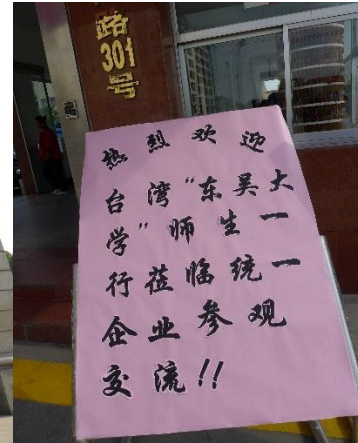 路
301
号
热烈欢迎
台湾“东吴大
学”师生一
行莅临统一
企业参观
交流!!